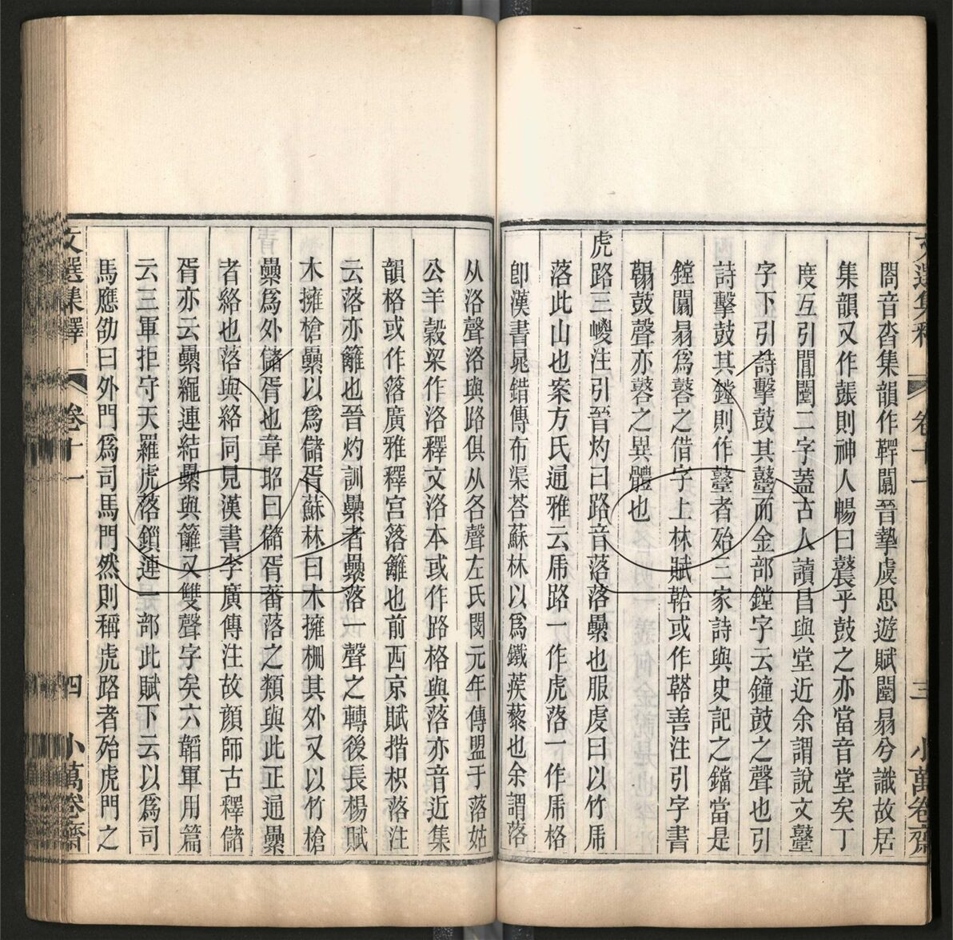 閤音沓集韻作鞾闒晉摯虞思遊賦闛昜兮識故居
集韻又作䟫則神人暢曰鼚乎鼓之亦當音堂矣丁
度互引閶闛二字蓋古人讀昌與堂近余謂說文鼞
字下引詩擊鼓其鼞而金部鏜字云鐘鼓之聲也引
詩擊鼓其鏜則作鼞者殆三家詩與史記之鐺當是
鏜闒昜為鼛之借字上林賦鞈或作鞳善注引字書
鞈鼓聲亦鼛之異體也
虎路三嵕注引晉灼曰路音落落纍也服虔曰以竹虎
落此山也案方氏通雅云虎路一作虎落一作虎格
卽漢書晁錯傳布渠荅蘇林以為鐵蒺藜也余謂落
从洛聲洛與路俱从各聲左氏閔元年傳盟于落姑
公羊穀梁作洛釋文洛本或作路格與落亦音近集
韻格或作落廣雅釋宮落籬也前西京賦揩枳落注
云落亦籬也晉灼訓纍者纍落一聲之轉後長楊賦
木擁槍纍以為儲胥蘇林曰木擁柵其外又以竹槍
纍為外儲胥也韋昭曰儲胥蕃落之類與此正通纍
者絡也落與絡同見漢書李廣傳注故顏師古釋儲
胥亦云纍繩連結纍與籬又雙聲字矣六韜軍用篇
云三軍拒守天羅虎落鎖連一部此賦下云以為司
馬應劭曰外門為司馬門然則稱虎路者殆虎門之
文選集釋 卷十一 三 小萬卷齋
文選集釋 卷十一 四 小萬卷齋